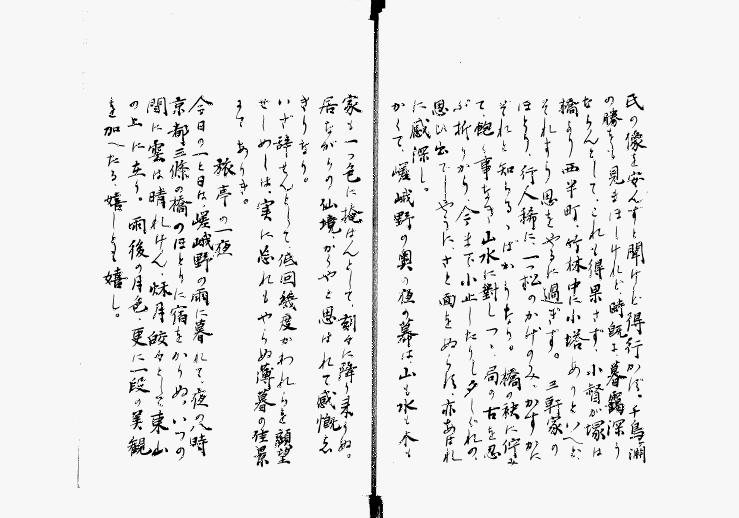 氏の像を安んずと聞けど得行かず、千鳥淵
の勝をも見まほしけれど、時既に暮靄深う
ならんとして、これも得果さず、小督が塚は
橋より西半町、竹林中に小塔ありといへど、
それすら思をやるに過ぎず。三軒家の
ほとり、行人稀に、一つ松のかげのみ、かすかに
それと知らるゝばかりなり。橋の袂に佇み
て、飽く事なき山水に對しつゝ、局の古を思
ぶ折しがり、今まで小止したりし夕しぐれの、
思ひ出でしやうに、さと面をぬらす、亦あはれ
に感深し。
かくて、嵯峨野の奥の夜の幕は、山も水も木も
家も一つ色に掩はんとして、刻々に降り来りぬ。
居ながらの仙境、からやと思はれて感慨
きりなり。
いざ辞せんとして、低回幾度かわれらを顧望
せしめしは、実に忘れもやらぬ薄暮の佳景
にてありき。
旅亭の一夜
今日の一と日は、嵯峨野の雨に暮れて、夜の八時
京都三條の橋のほとりに宿をかりぬ。いつの
間に雲は晴れけん、秋月皎々として東山
の上に在り。雨後の月色、更に一段の美観
を加へたる、嬉しとも嬉し。